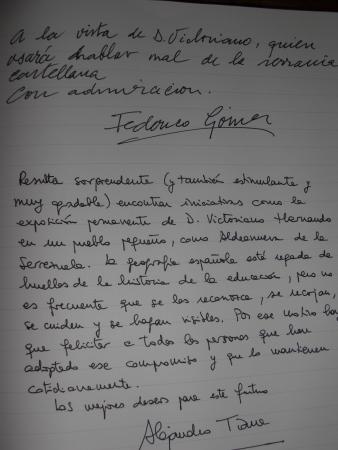 A la vista de D. Victoriano, quien
osará hablar mal de la serranía
castellana
Con admiración.
Federico Gómez
Resulta sorprendente (y también estimulante y
muy agradable) encontrar iniciativas como la
exposición permanente de D. Victoriano Hernando
en un pueblo pequeño, como Aldeanueva de la
Serrezuela. La geografía española está regada de
huellas de la historia de la educación, pero no
es frecuente que se las reconozca, se recojan,
se cuiden y se hagan visibles. Por ese motivo hay
que felicitar a todas las personas que han
adoptado ese compromiso y que lo mantienen
cotidianamente.
Los mejores deseos para este futuro
Alejandro Tiana